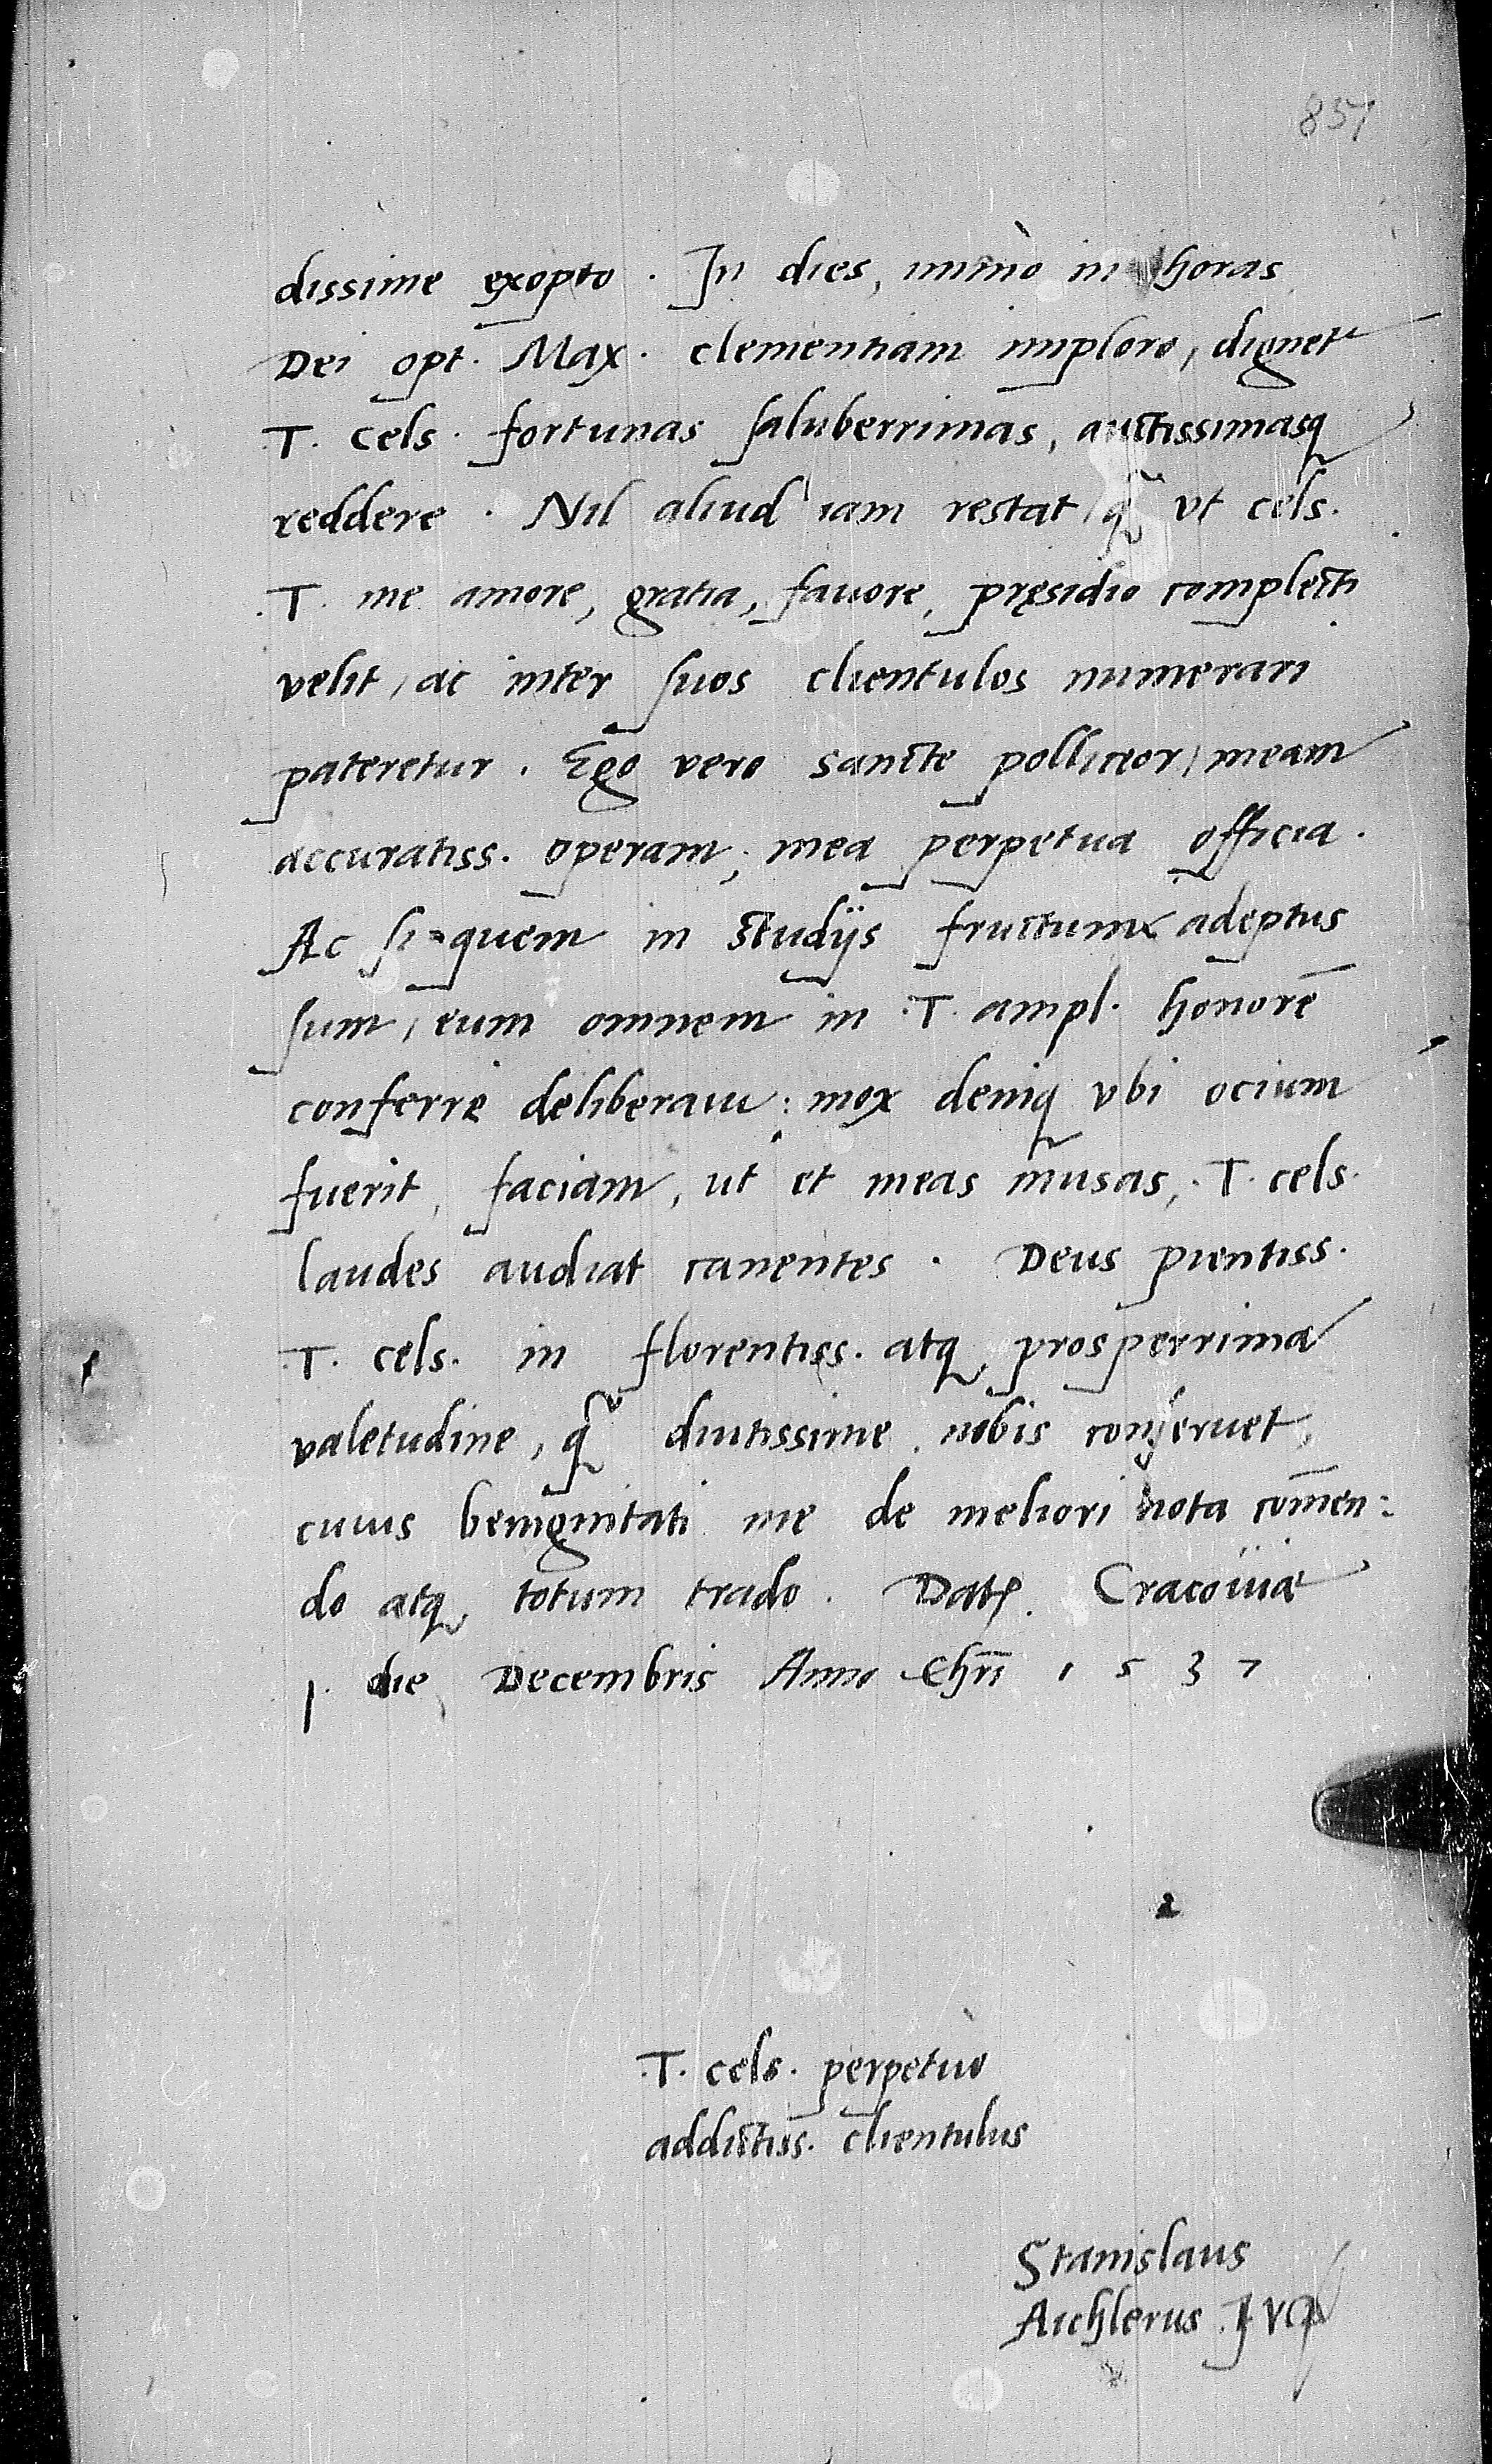 851
dissime exopto. In dies, immò in horas
Dei opt. Max. clementiam imploro, dignet᷑
T. cels. fortunas saluberrimas, auctissimasq
reddere. Nil aliud iam restat, q̃ vt cels.
T. me amore, gratia, fauore, pręsidio complecti
velit, ac inter suos clientulos numerari
pateretur. Ego vero sancte polliceor, meam
accuratiss. operam, mea perpetua officia.
Ac si-quem in studijs fructum adeptus
sum, eum omnem in .T. ampl. honorē
conferre deliberaui: mox deniq vbi ocium
fuerit, faciam, ut et meas musas, .T. cels.
laudes audiat canentes. Deus pientiss.
.T. cels. in florentiss. atq prosperrima
valetudine, q̃ diutissime nobis conseruet,
cuius benignitati me de meliori nota com̄en:
do atq totum trado. Datꝭ. Cracouiæ
1. die Decembris Anno Chrī 1537
.T. cels. perpetuo
addictiss. clientulus
Stanislaus
Aichlerus